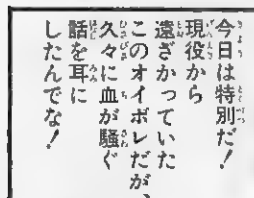 今日は特別だ！
現役から
遠ざかっていた
このオイボレだが、
久々に血が騒ぐ
話を耳に
したんでな！